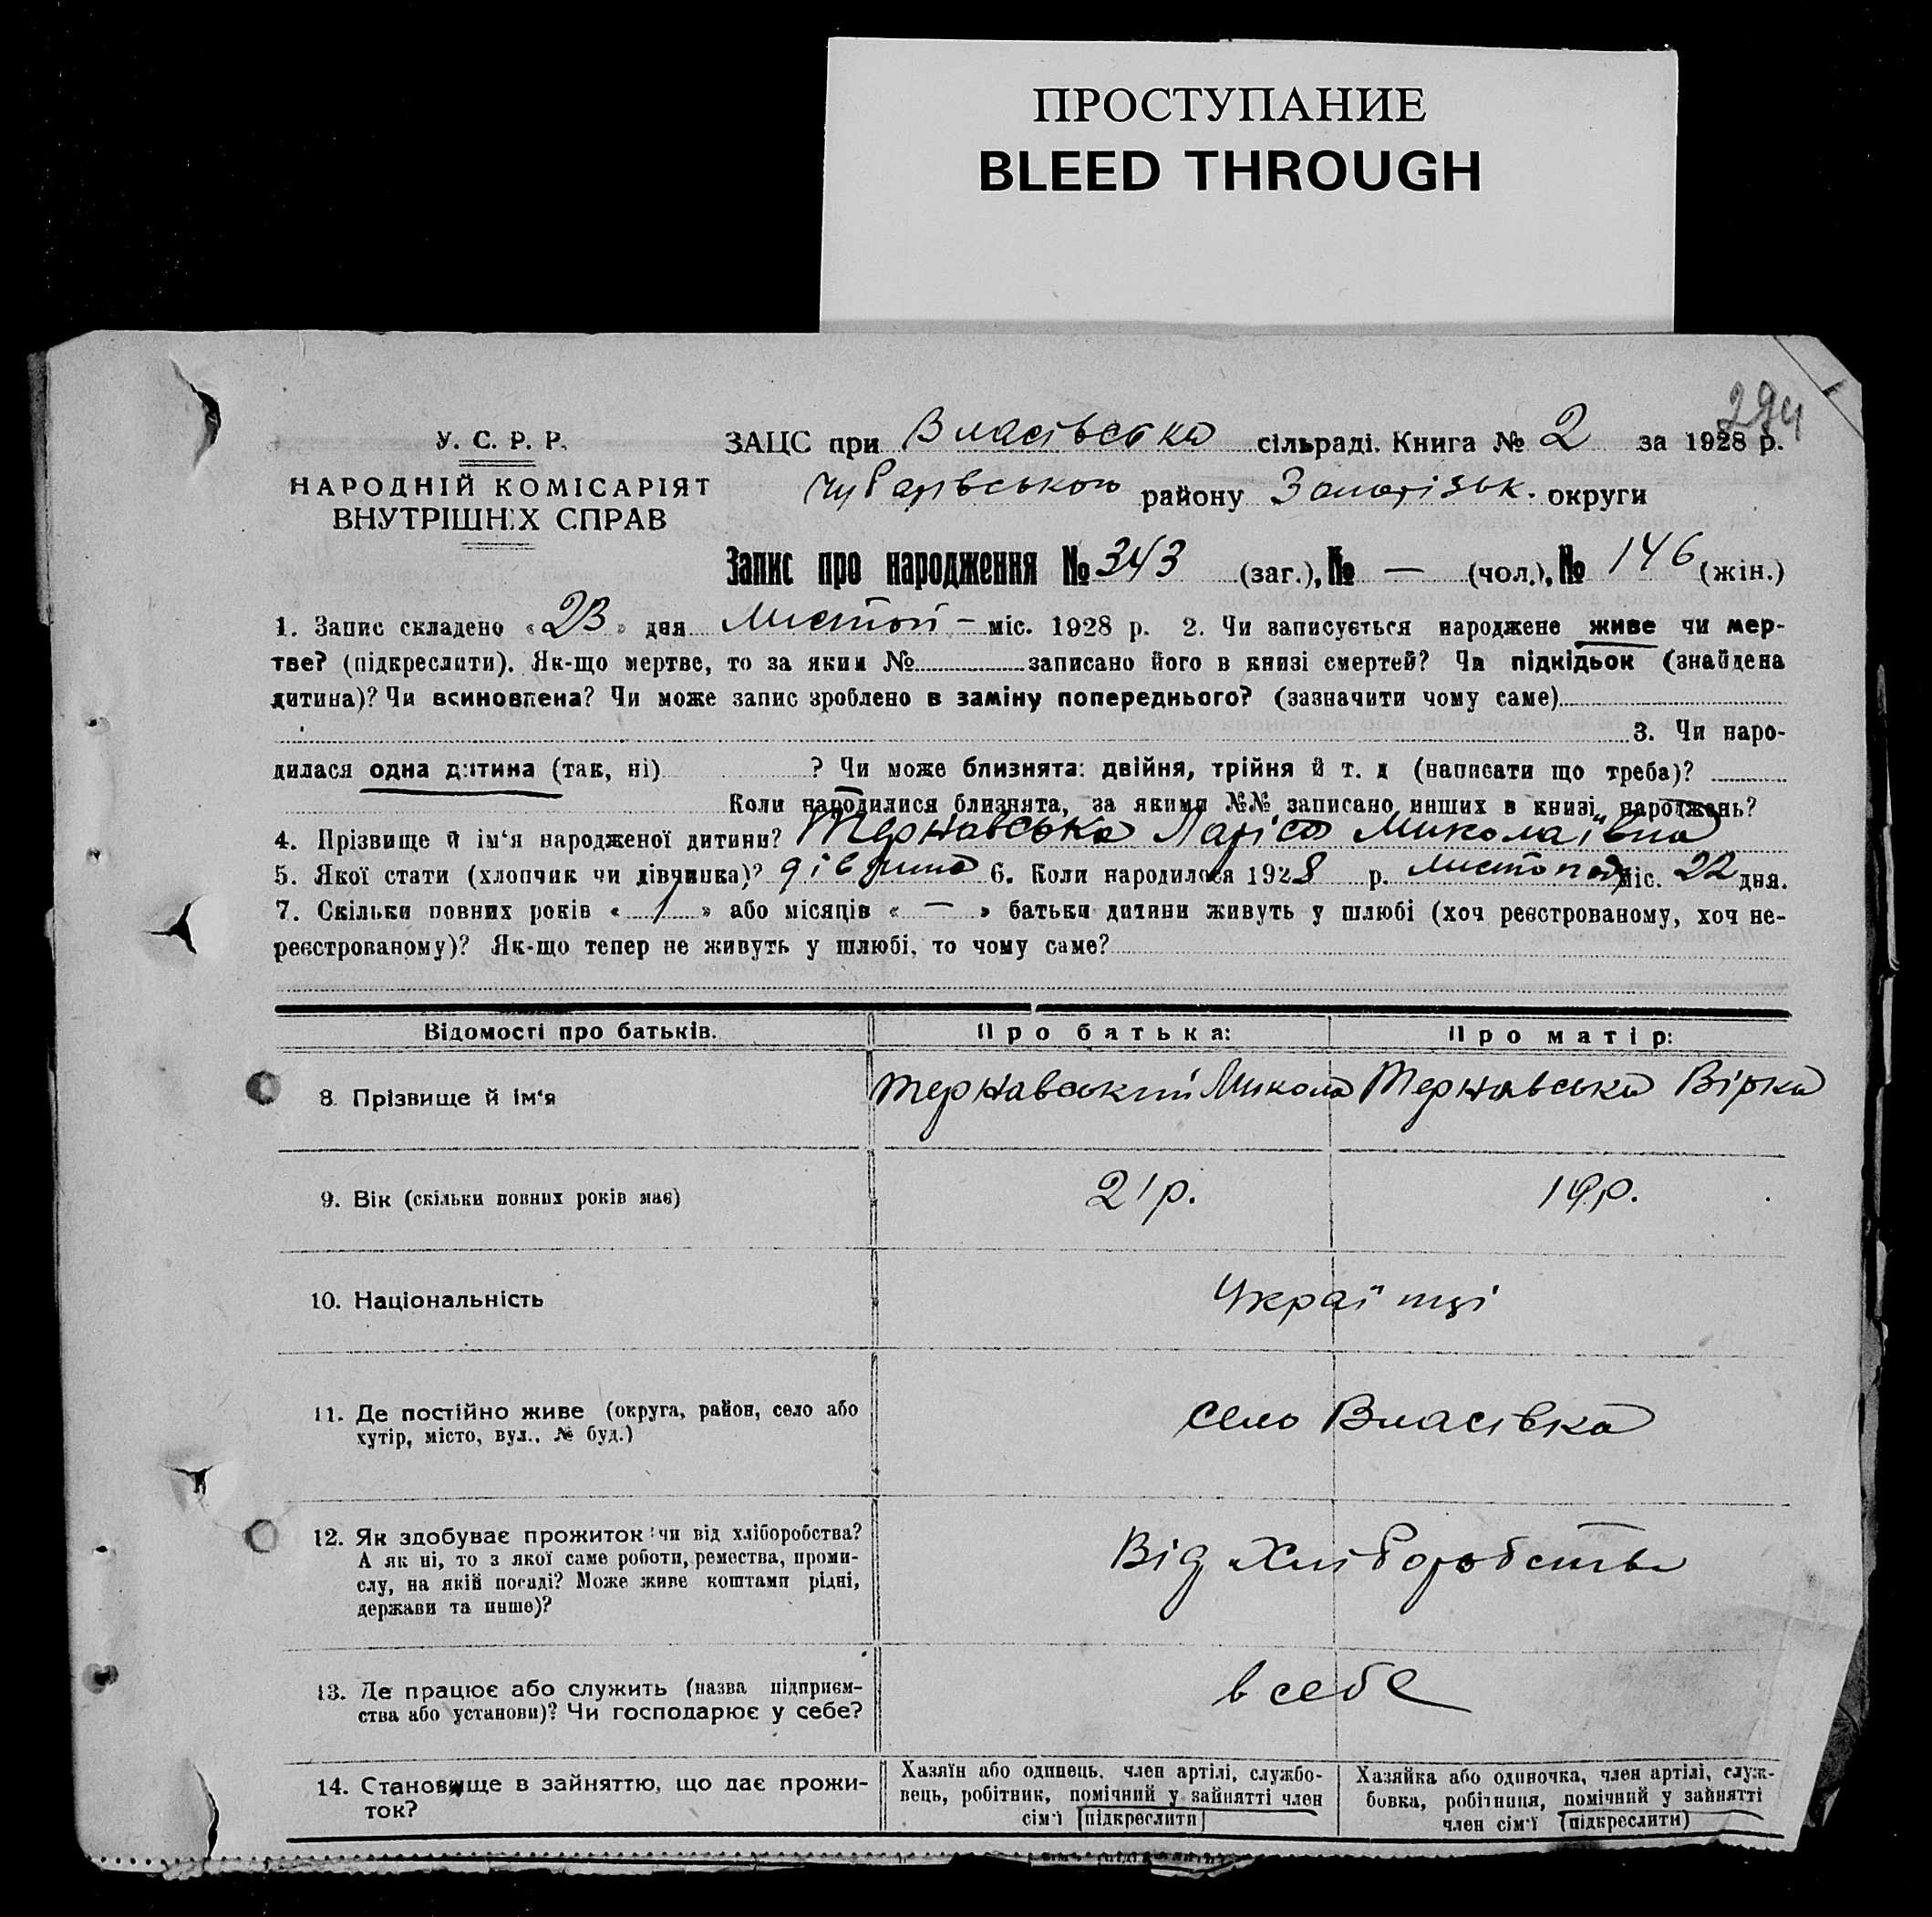 ПРОСТУПАНИЕ
BLEED THROUGH
294
У. С. Р. Р.
НАРОДНІЙ КОМІСАРІЯТ
ВНУТРІШНІХ СПРАВ
ЗАЦС при Власівська сільраді. Книга № 2 за 1928 р.
Чубарівського району Запорізьк. округи
Запис про народження № 343 (заг.), № — (чол.), № 146 (жін.)
1. Запис складено «23» дня Листоп- міс. 1928 р. 2. Чи записується народжене живе чи мер-
тве? (підкреслити). Як-що мертве, то за яким № записано його в книзі смертей? Чи підкідьок (знайдена
дитина)? Чи всиновлена? Чи може запис зроблено в заміну попереднього? (зазначити чому саме)
3. Чи наро-
дилася одна дитина (так, ні) ? Чи може близнята: двійня, трійня й т. д (написати що треба)?
Коли народилися близнята, за якими №№ записано инших в книзі народжень?
4. Прізвище й ім'я народженої дитини? Тернавська Ларіса Миколаївна
5. Якої стати (хлопчик чи дівчинка)? дівчина 6. Коли народилося 1928 р. листопад міс. 22 дня.
7. Скільки повних років «1» або місяців «—» батьки дитини живуть у шлюбі (хоч реєстрованому, хоч не-
реєстрованому)? Як-що тепер не живуть у шлюбі, то чому саме?
Відомості про батьків. Про батька: Про матір:
8. Прізвище й ім'я Тернавський Микола Тернавська Вірка
9. Вік (скільки повних років має) 21 р. 19 р.
10. Національність Українці
11. Де постійно живе (округа, район, село або
хутір, місто, вул., № буд.)
село Власівка
12. Як здобуває прожиток: чи від хліборобства?
А як ні, то з якої саме роботи, ремества, проми-
слу, на якій посаді? Може живе коштами рідні,
держави та инше)?
Від Хліборобства
13. Де працює або служить (назва підприєм-
ства або установи)? Чи господарює у себе?
в себе
14. Становище в зайняттю, що дає прожи-
ток?
Хазяїн або одинець, член артілі, службо-
вець, робітник, помічний у зайнятті член
сім'ї (підкреслити)
Хазяйка або одиночка, член артілі, служ-
бовка, робітниця, помічний у зайнятті
член сім'ї (підкреслити)